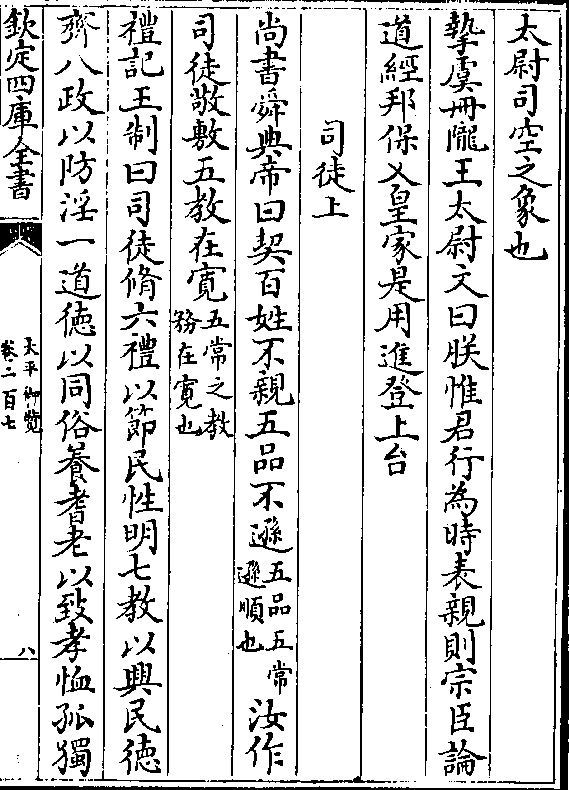 太尉司空之象也
摯虞冊隴王太尉文曰朕惟君行為時表親則宗臣論
道經邦保乂皇家是用進登上台
司徒上
尚書舜典帝曰契百姓不親五品不遜五品五常遜順也汝作
司徒敬敷五教在寛五常之教務在寛也
禮記王制曰司徒脩六禮以節民性明七教以興民徳
齊八政以防淫一道徳以同俗養耆老以致孝恤孤獨
欽定四庫全書
太平御覽
卷二百七
八